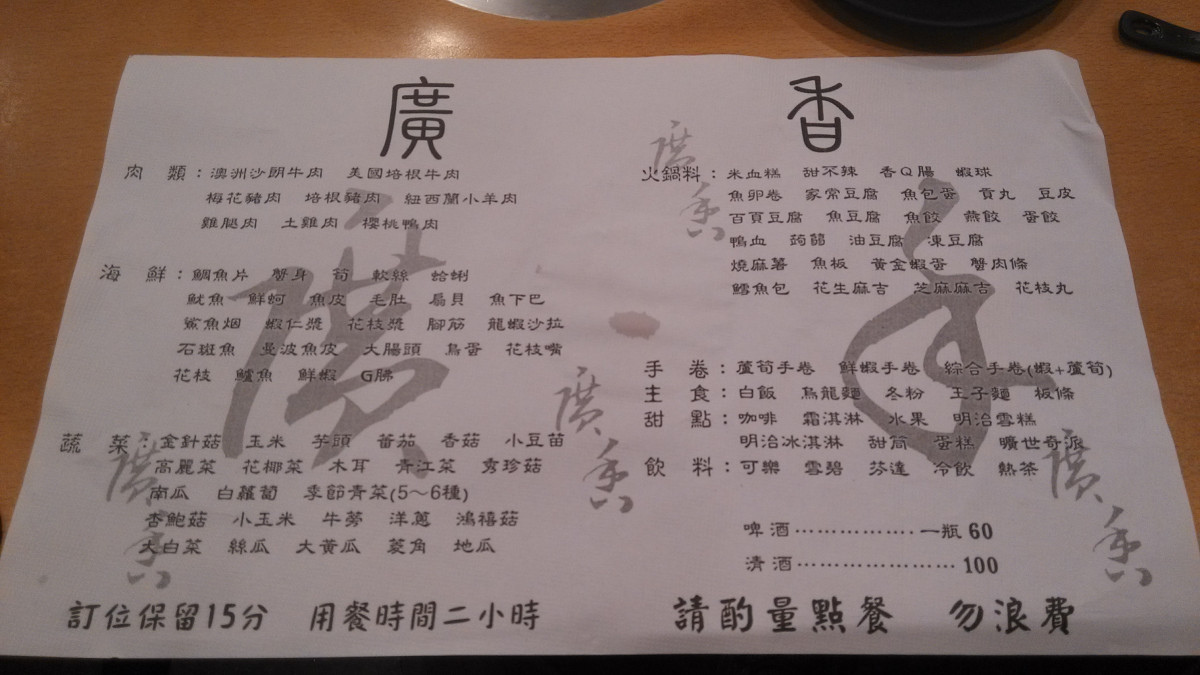 廣香
肉 類：澳洲沙朗牛肉 美國培根牛肉
梅花豬肉 培根豬肉 紐西蘭小羊肉
雞腿肉 土雞肉 櫻桃鴨肉
海 鮮：鯛魚片 蟹身 筍 軟絲 蛤蜊
魷魚 鮮蚵 魚皮 毛肚 扇貝 魚下巴
鯊魚烟 蝦仁漿 花枝漿 腳筋 龍蝦沙拉
石斑魚 曼波魚皮 大腸頭 鳥蛋 花枝嘴
花枝 鱸魚 鮮蝦 G腸
蔬 菜：金針菇 玉米 芋頭 蕃茄 香菇 小豆苗
高麗菜 花椰菜 木耳 青江菜 秀珍菇
南瓜 白蘿蔔 季節青菜(5～6種)
杏鮑菇 小玉米 牛蒡 洋蔥 鴻禧菇
大白菜 絲瓜 大黃瓜 菱角 地瓜
訂位保留15分 用餐時間二小時
火鍋料：米血糕 甜不辣 香Q腸 蝦球
魚卵卷 家常豆腐 魚包蛋 貢丸 豆皮
百頁豆腐 魚豆腐 魚餃 燕餃 蛋餃
鴨血 蒟蒻 油豆腐 凍豆腐
燒麻薯 魚板 黃金蝦蛋 蟹肉條
鱈魚包 花生麻吉 芝麻麻吉 花枝丸
手 卷：蘆筍手卷 鮮蝦手卷 綜合手卷(蝦+蘆筍)
主 食：白飯 烏龍麵 冬粉 王子麵 板條
甜 點：咖啡 霜淇淋 水果 明治雪糕
明治冰淇淋 甜筒 蛋糕 曠世奇派
飲 料：可樂 雪碧 芬達 冷飲 熱茶
啤酒................一瓶60
清酒......................100
請酌量點餐 勿浪費
廣香
廣香
廣香
廣香